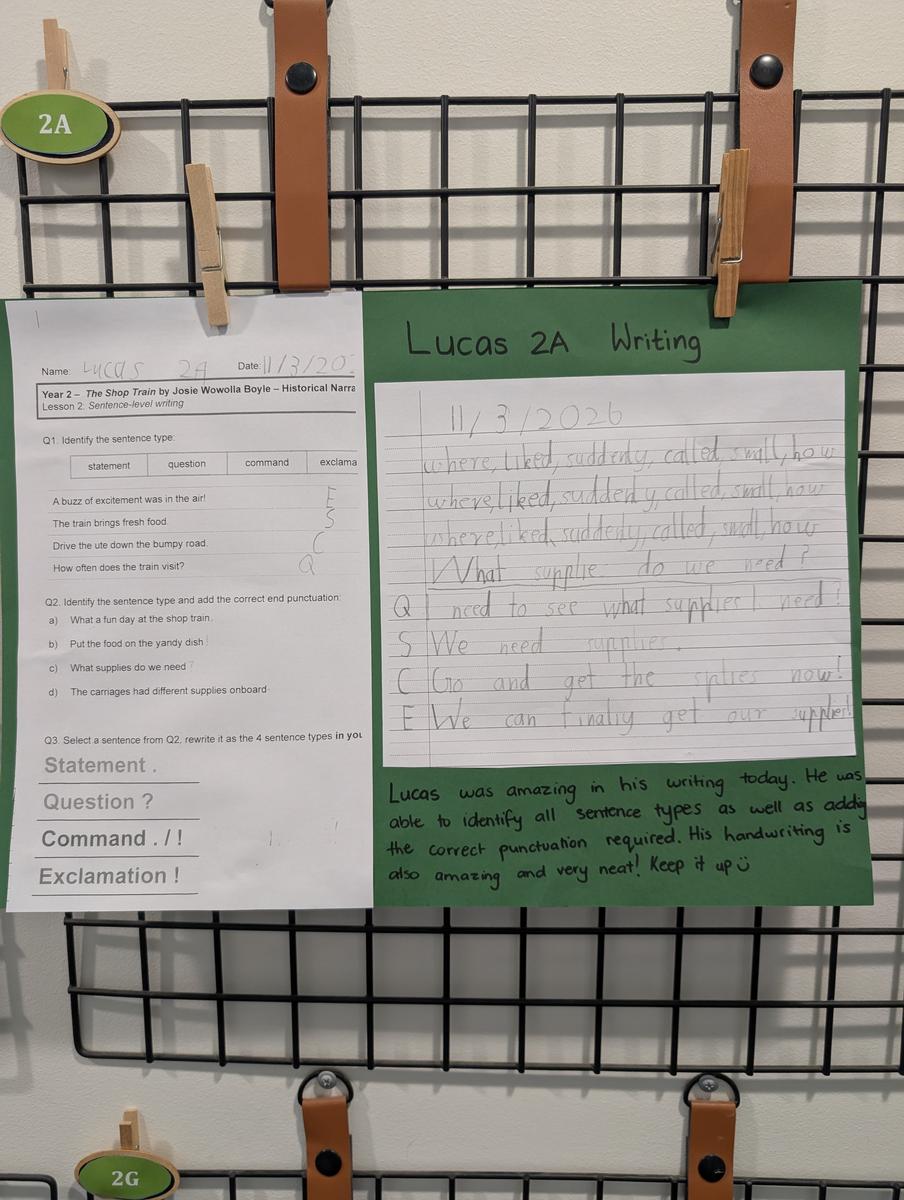 2A
Name: Lucas 2A Date: 11/3/202
Year 2 – The Shop Train by Josie Wowolla Boyle – Historical Narra
Lesson 2: Sentence-level writing
Q1. Identify the sentence type:
statement question command exclama
A buzz of excitement was in the air! E
The train brings fresh food. S
Drive the ute down the bumpy road. C
How often does the train visit? Q
Q2. Identify the sentence type and add the correct end punctuation:
a) What a fun day at the shop train
b) Put the food on the yandy dish
c) What supplies do we need ?
d) The carriages had different supplies onboard
Q3. Select a sentence from Q2, rewrite it as the 4 sentence types in you
Statement .
Question ?
Command . / !
Exclamation !
Lucas 2A Writing
11/3/2026
where, liked, suddenly, called, small, how
where, liked, suddenly, called, small, how
where, liked, suddenly, called, small, how
What supplie do we need?
Q I need to see what supplies I need!
S We need supplies.
C Go and get the splies now!
E We can finaly get our supplies!
Lucas was amazing in his writing today. He was
able to identify all sentence types as well as adding
the correct punctuation required. His handwriting is
also amazing and very neat! Keep it up
2G